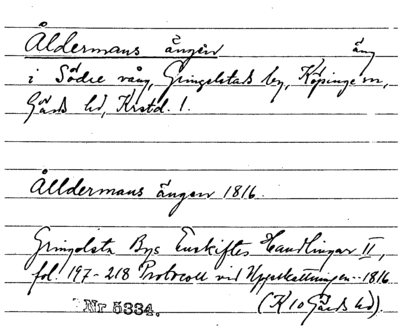 Åldermans ängen äng
i Södre vång, Gringelstads by, Köpinge sn,
Gärds hd, Krstd. l.
Ålldermans ängen 1816.
Gringelsta Bys Enskiftes Handlingar II,
fol. 197-218 Protocoll vid Uppskattningen -- 1816
(K 10 Gärds hd).
Nr 5334.